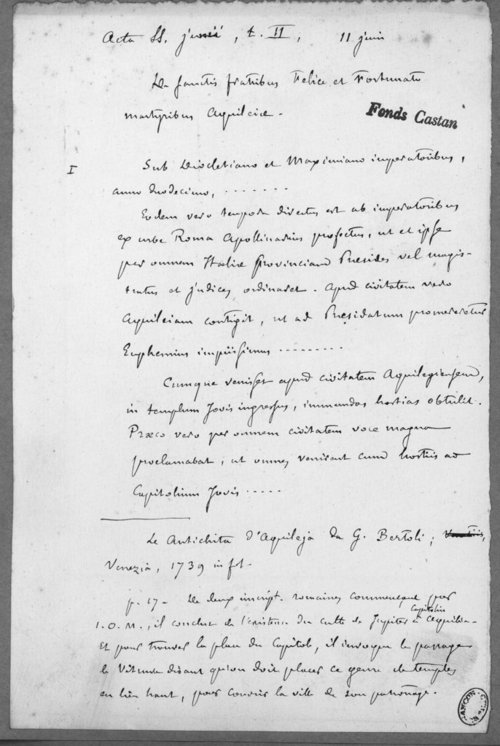 Acta SS. junii, t. II, 11 juin
De sanctis fratribus Felice et Fortunato
martyribus Aquileiæ.
Fonds Castan
I
Sub Diocletiano et Maximiano imperatoribus,
anno duodecimo, .......
Eodem vero tempore directus est ab imperatoribus
ex urbe Roma Apollinarius profectus, ut et ipse
per omnem Italiæ Provinciam Præsides vel magis-
tratus et judices ordinaret. Apud civitatem vero
Aquileiam contigit, ut ad Præsidatum promoveretur
Euphemius impiissimus .........
Cumque venisset apud civitatem Aquilegiensem,
in templum Jovis ingressus, immundas hostias obtulit.
Præco vero per omnem civitatem voce magna
proclamabat, ut omnes venirent cum hostiis ad
Capitolium Jovis .....
Le Antichita d'Aquileja da G. Bertoli; Venetiis,
Venezia, 1739 in fol.
p. 17 - De deux inscript. romaines commençant par
I.O.M., il conclut de l'existence du culte de Jupiter Capitolin à Aquilée.
Et pour trouver la place du Capitole, il invoque le passage
de Vitruve disant qu'on doit placer ce genre de temples
en lieu haut, pour couvrir la ville de son patronage.